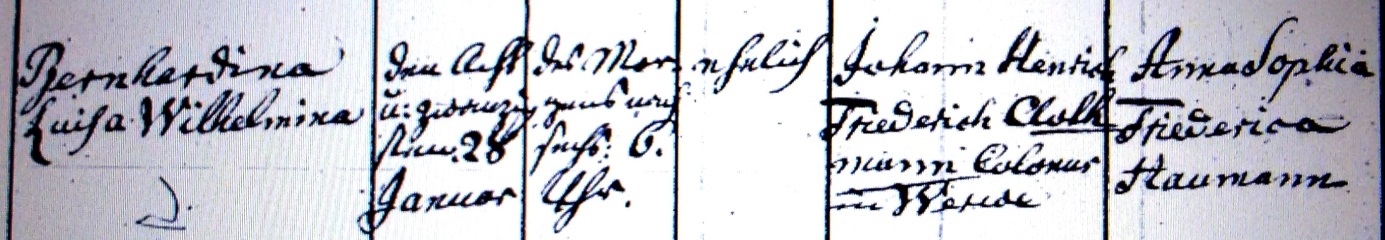 Bernhardina
Luisa Wilhelmina
den Acht
u. zwanzig
sten. 28
Januar
des Mor
gens nach
sechs. 6.
Uhr.
ehelich
Johann Henrich
Friederich Cloth
mann Colonus
in
Anna Sophia
Friederica
Haumann